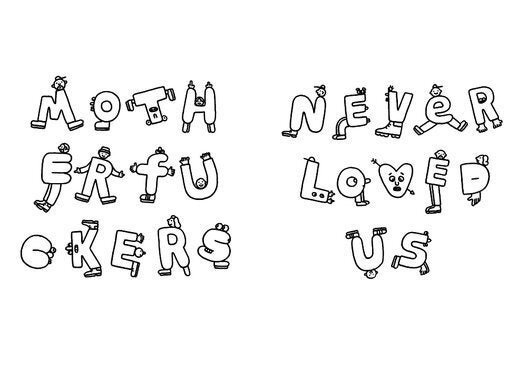 MOTH
ERFU
CKERS
NEVER
LOVED
US